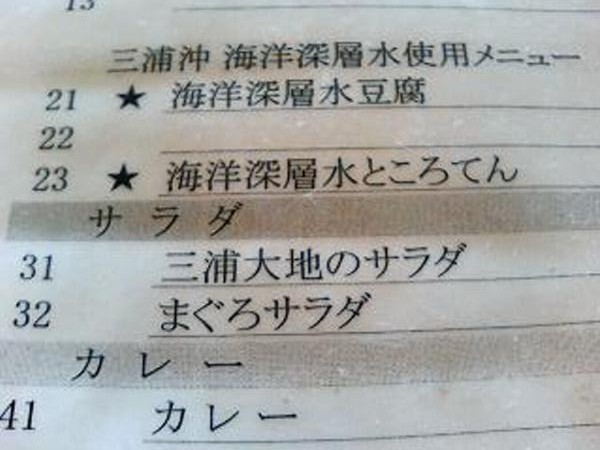 三浦沖 海洋深層水使用メニュー
21 ★ 海洋深層水豆腐
22
23 ★ 海洋深層水ところてん
サラダ
31 三浦大地のサラダ
32 まぐろサラダ
カレー
41 カレー